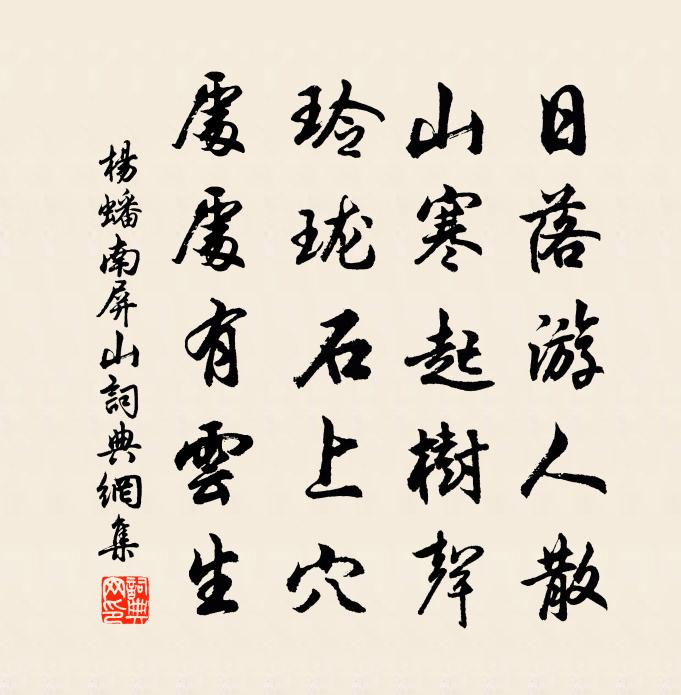 日落游人散
山寒起樹聲
玲珑石上穴
處處有雲生
楊蟠南屏山詞典網集
詞典网印